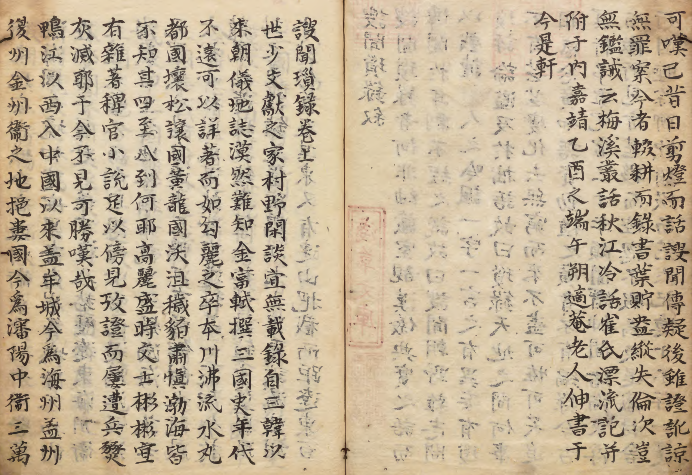 可嘆已昔日剪燈而話謏聞傳疑後雖證訛諒
無罪案今者輟耕而錄書葉貯盎縱失倫次豈
無鑑誡云梅溪叢話秋江冷話崔氏漂流記并
附于內嘉靖乙酉之端午朔適菴老人伸書于
今是軒
謏聞瑣錄卷上
世少文獻之家村野閑談並無載錄自三韓以
來朝儀地誌漠然難知金富軾撰三國史年代
不遠可以詳著而如勾麗之卒本川沸流水丸
都國壤松讓國黃龍國沃沮穢貊肅愼渤海皆
不知其四至八到何耶高麗盛時文士彬彬宜
有雜著稗官小說足以傍見攷證而屢遭兵燹
灰滅耶于今不見可勝嘆哉
鴨江以西入中國以來盖牟城今爲海州盖州
復州金州衞之地挹婁國今爲瀋陽中衞三萬